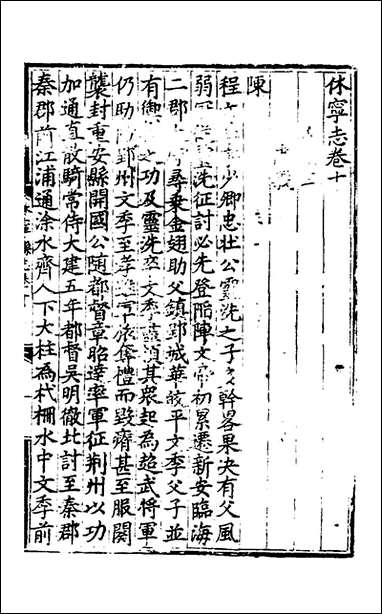 休寧志卷十
陳
程文季少卿忠壯公靈洗之子文幹畧果决有父風
弱冠從靈洗征討必先登陷陣文帝初累遷新安臨海
二郡尋乗金翅助父鎮郢城華皎平文季父子並
有禦之功及靈洗卒文季盡領其衆起為超武將軍
仍助防郢州文季至孝雖軍旅奪禮而毀瘠甚至服闋
襲封重安縣開國公随都督章昭達率軍征荆州以功
加通直散騎常侍大建五年都督吳明徹北討至秦郡
秦郡前江浦通涂水齊人下大柱為杙柵水中文季前